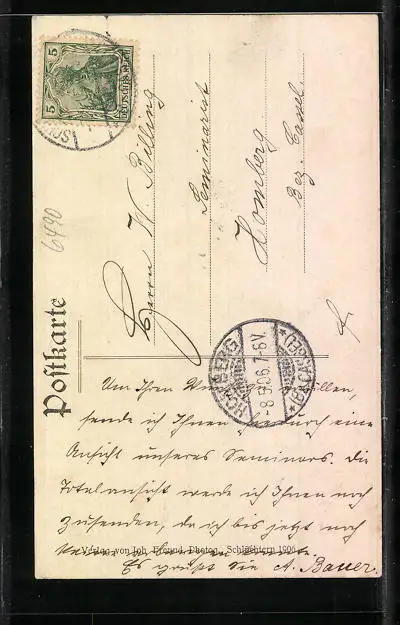 Postkarte
Herrn W. Billing
Seminarist
Homberg
Bez. Cassel.
5 DEUTSCHES REICH 5
HOMBERG
-8.5.06.7-8V.
* (BZ. CASSEL) *
6490
Um Ihren zu erfüllen,
sende ich Ihnen hierdurch eine
Ansicht unseres Seminars. Die
Totalansicht werde ich Ihnen noch
zusenden, da ich bis jetzt noch
keine
Es grüßt Sie A. Bauer.
Verlag von Joh. Freund, Photog., Schlüchtern 1906.